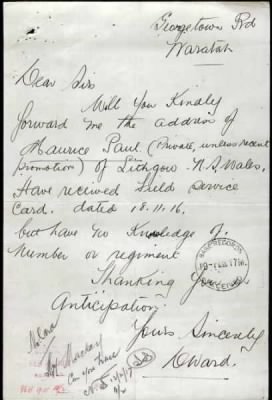 Georgetown Rd
Waratah
Dear Sirs
Will You Kindly
forward me the address of
Maurice Paul (Private, unless recent
promotion) of Lithgow N.S. Wales,
Have recieved Field Service
Card. dated 18.11.16.
but have no Knowledge of.
Number or regiment
Thanking You
Anticipation,
Yours Sincerely
Ward.
No Card
Mackay
Can you trace
BASE RECORDS
RECEIVED